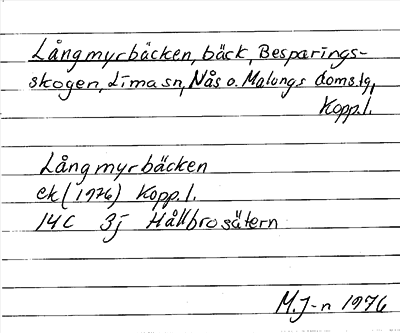 Långmyrbäcken, bäck, Besparings-
skogen, Lima sn, Nås o. Malungs doms.lg,
Kopp.l.
Långmyrbäcken
ek (1976) Kopp.l.
14C 3j Hållbrosätern
M.J-n 1976